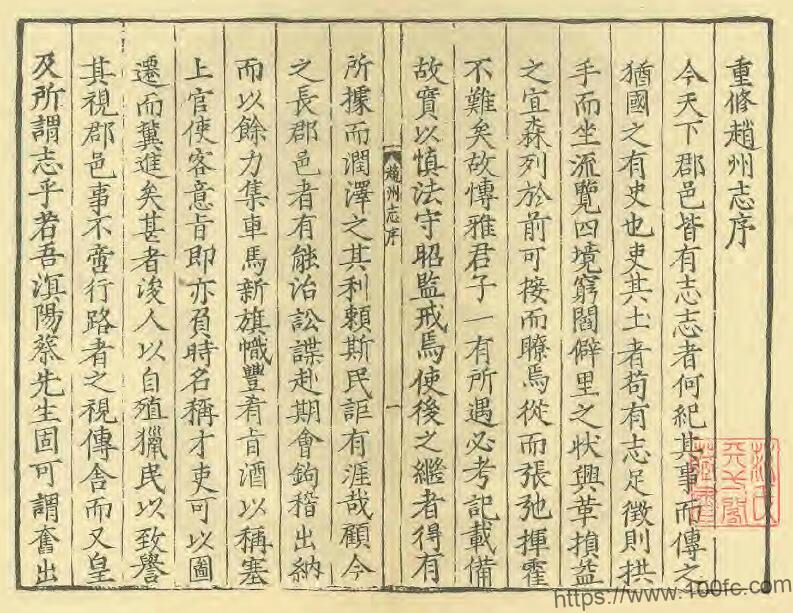 重修趙州志序
今天下郡邑皆有志志者何紀其事而傳之
猶國之有史也吏其土者苟有志足徵則拱
手而坐流覽四境窮閻僻里之狀興革損益
之宜森列於前可接而瞭焉從而張弛揮霍
不難矣故愽雅君子一有所遇必考記載備
故實以慎法守昭監戒焉使後之繼者得有
趙州志序
一
所據而潤澤之其利頼斯民詎有涯哉顧今
之長郡邑者有能治訟諜赴期會鉤稽出納
而以餘力集車馬新旗幟豐肴旨酒以稱塞
上官使客意旨即亦負時名稱才吏可以圖
遷而冀進矣甚者浚人以自殖獵民以致譽
其視郡邑事不啻行路者之視傳舍而又皇
及所謂志乎若吾滇陽蔡先生固可謂奮出
范氏天一閣藏書
https://www.100fc.com